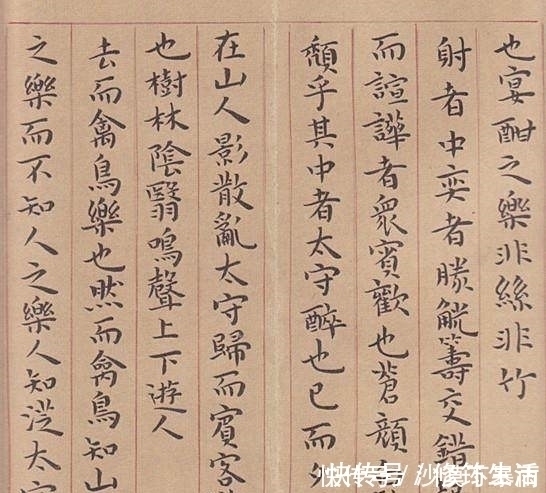 也宴酣之樂非絲非竹
射者中奕者勝觥籌交錯
而諠譁者衆賓歡也蒼顏
頹乎其中者太守醉也已而夕
在山人影散亂太守歸而賓客
也樹林陰翳鳴聲上下遊人
去而禽鳥樂也然而禽鳥知山
之樂而不知人之樂人知從太守
快传号/